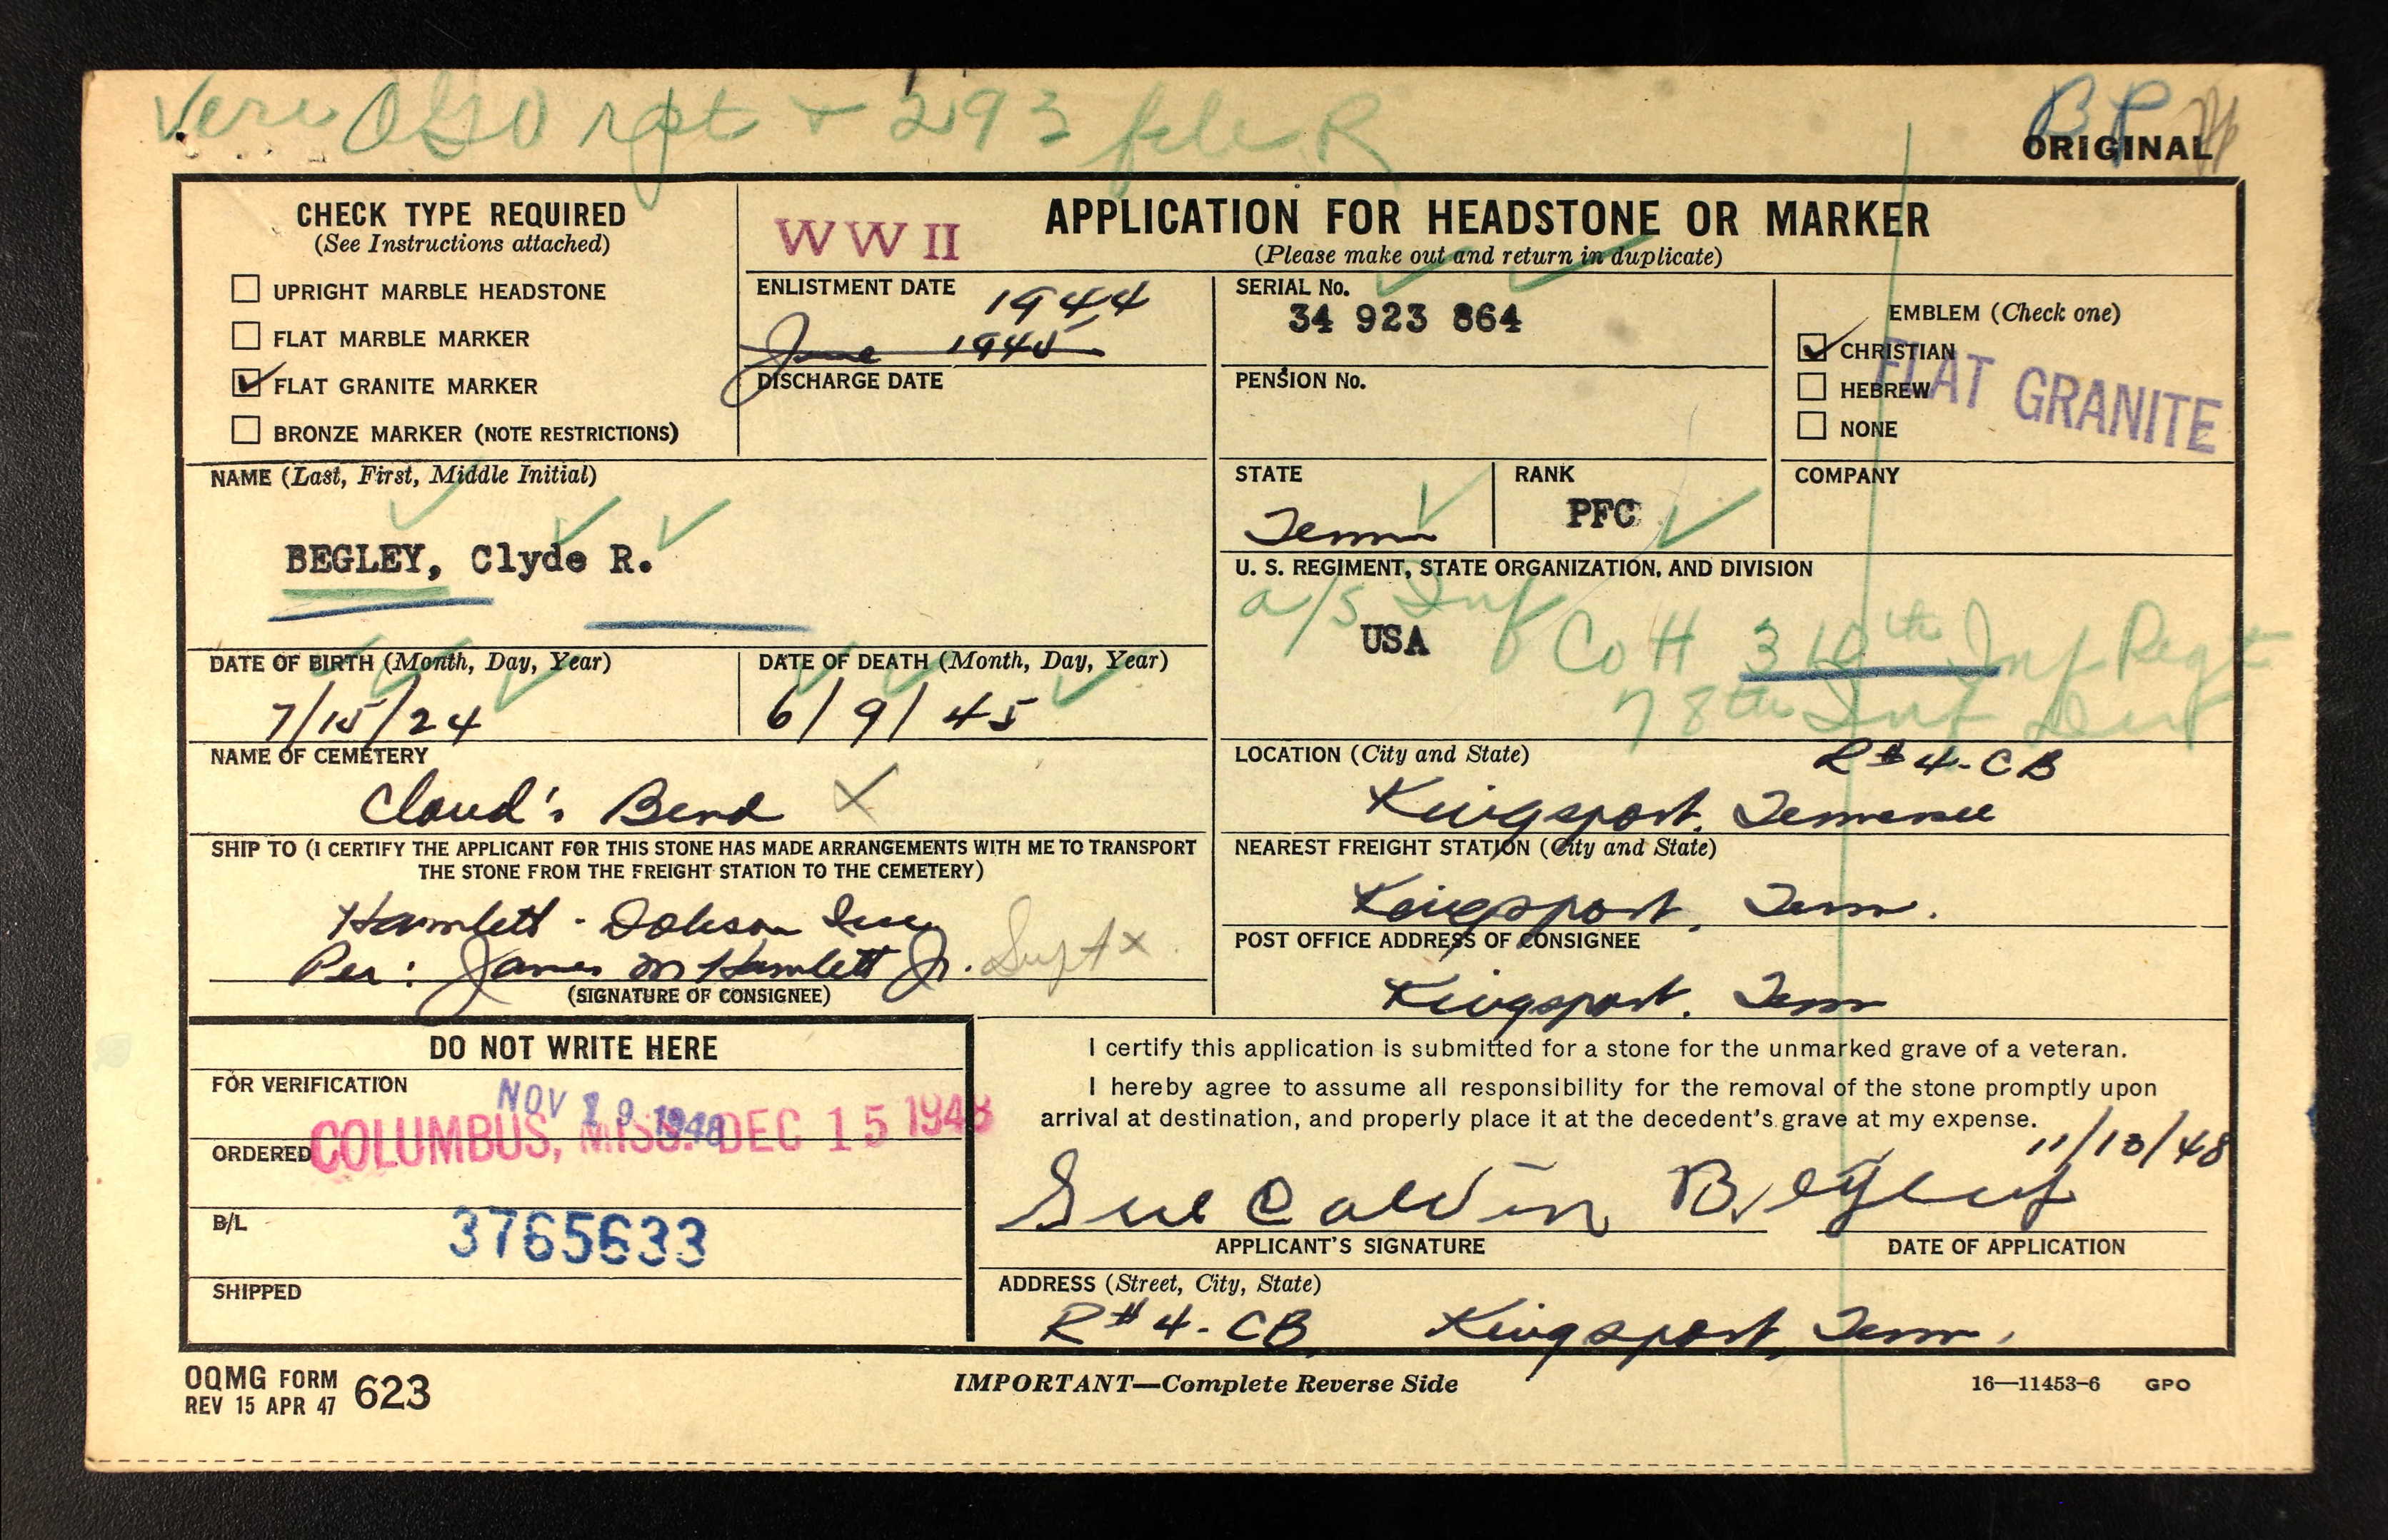 Veri OGO rpt + 293 file R
BP
ORIGINAL
CHECK TYPE REQUIRED
(See Instructions attached)
UPRIGHT MARBLE HEADSTONE
FLAT MARBLE MARKER
FLAT GRANITE MARKER
BRONZE MARKER (NOTE RESTRICTIONS)
WW II
APPLICATION FOR HEADSTONE OR MARKER
(Please make out and return in duplicate)
ENLISTMENT DATE
1944
June 1945
DISCHARGE DATE
SERIAL No.
34 923 864
PENSION No.
EMBLEM (Check one)
CHRISTIAN
HEBREW
NONE
FLAT GRANITE
NAME (Last, First, Middle Initial)
BEGLEY, Clyde R.
STATE
Tenn
RANK
PFC
COMPANY
U. S. REGIMENT, STATE ORGANIZATION, AND DIVISION
a/s Inf
USA
Co H 310th Inf Regt
78th Inf Div
DATE OF BIRTH (Month, Day, Year)
7/15/24
DATE OF DEATH (Month, Day, Year)
6/9/45
NAME OF CEMETERY
Cloud's Bend X
LOCATION (City and State)
R#4-CB
Kingsport, Tennessee
SHIP TO (I CERTIFY THE APPLICANT FOR THIS STONE HAS MADE ARRANGEMENTS WITH ME TO TRANSPORT
THE STONE FROM THE FREIGHT STATION TO THE CEMETERY)
Hamlett - Dobson Inc
Per: James M Hamlett Jr. Supt x
(SIGNATURE OF CONSIGNEE)
NEAREST FREIGHT STATION (City and State)
Kingsport, Tenn.
POST OFFICE ADDRESS OF CONSIGNEE
Kingsport, Tenn
DO NOT WRITE HERE
FOR VERIFICATION
NOV 19 1948
ORDERED
COLUMBUS, MISS. DEC 15 1948
B/L
3765633
SHIPPED
I certify this application is submitted for a stone for the unmarked grave of a veteran.
I hereby agree to assume all responsibility for the removal of the stone promptly upon
arrival at destination, and properly place it at the decedent's grave at my expense.
11/13/48
Calvin Begley
APPLICANT'S SIGNATURE
DATE OF APPLICATION
ADDRESS (Street, City, State)
R#4-CB Kingsport, Tenn.
OQMG FORM 623
REV 15 APR 47
IMPORTANT—Complete Reverse Side
16—11453-6 GPO